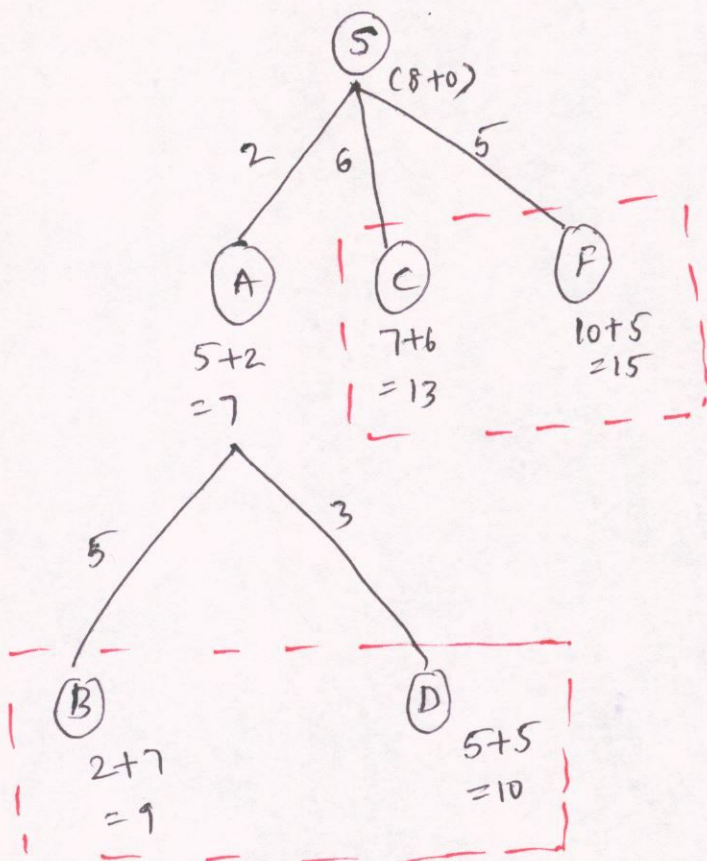 S
(8+0)
2
6
5
A
C
F
5+2
=7
7+6
=13
10+5
=15
5
3
B
D
2+7
=9
5+5
=10